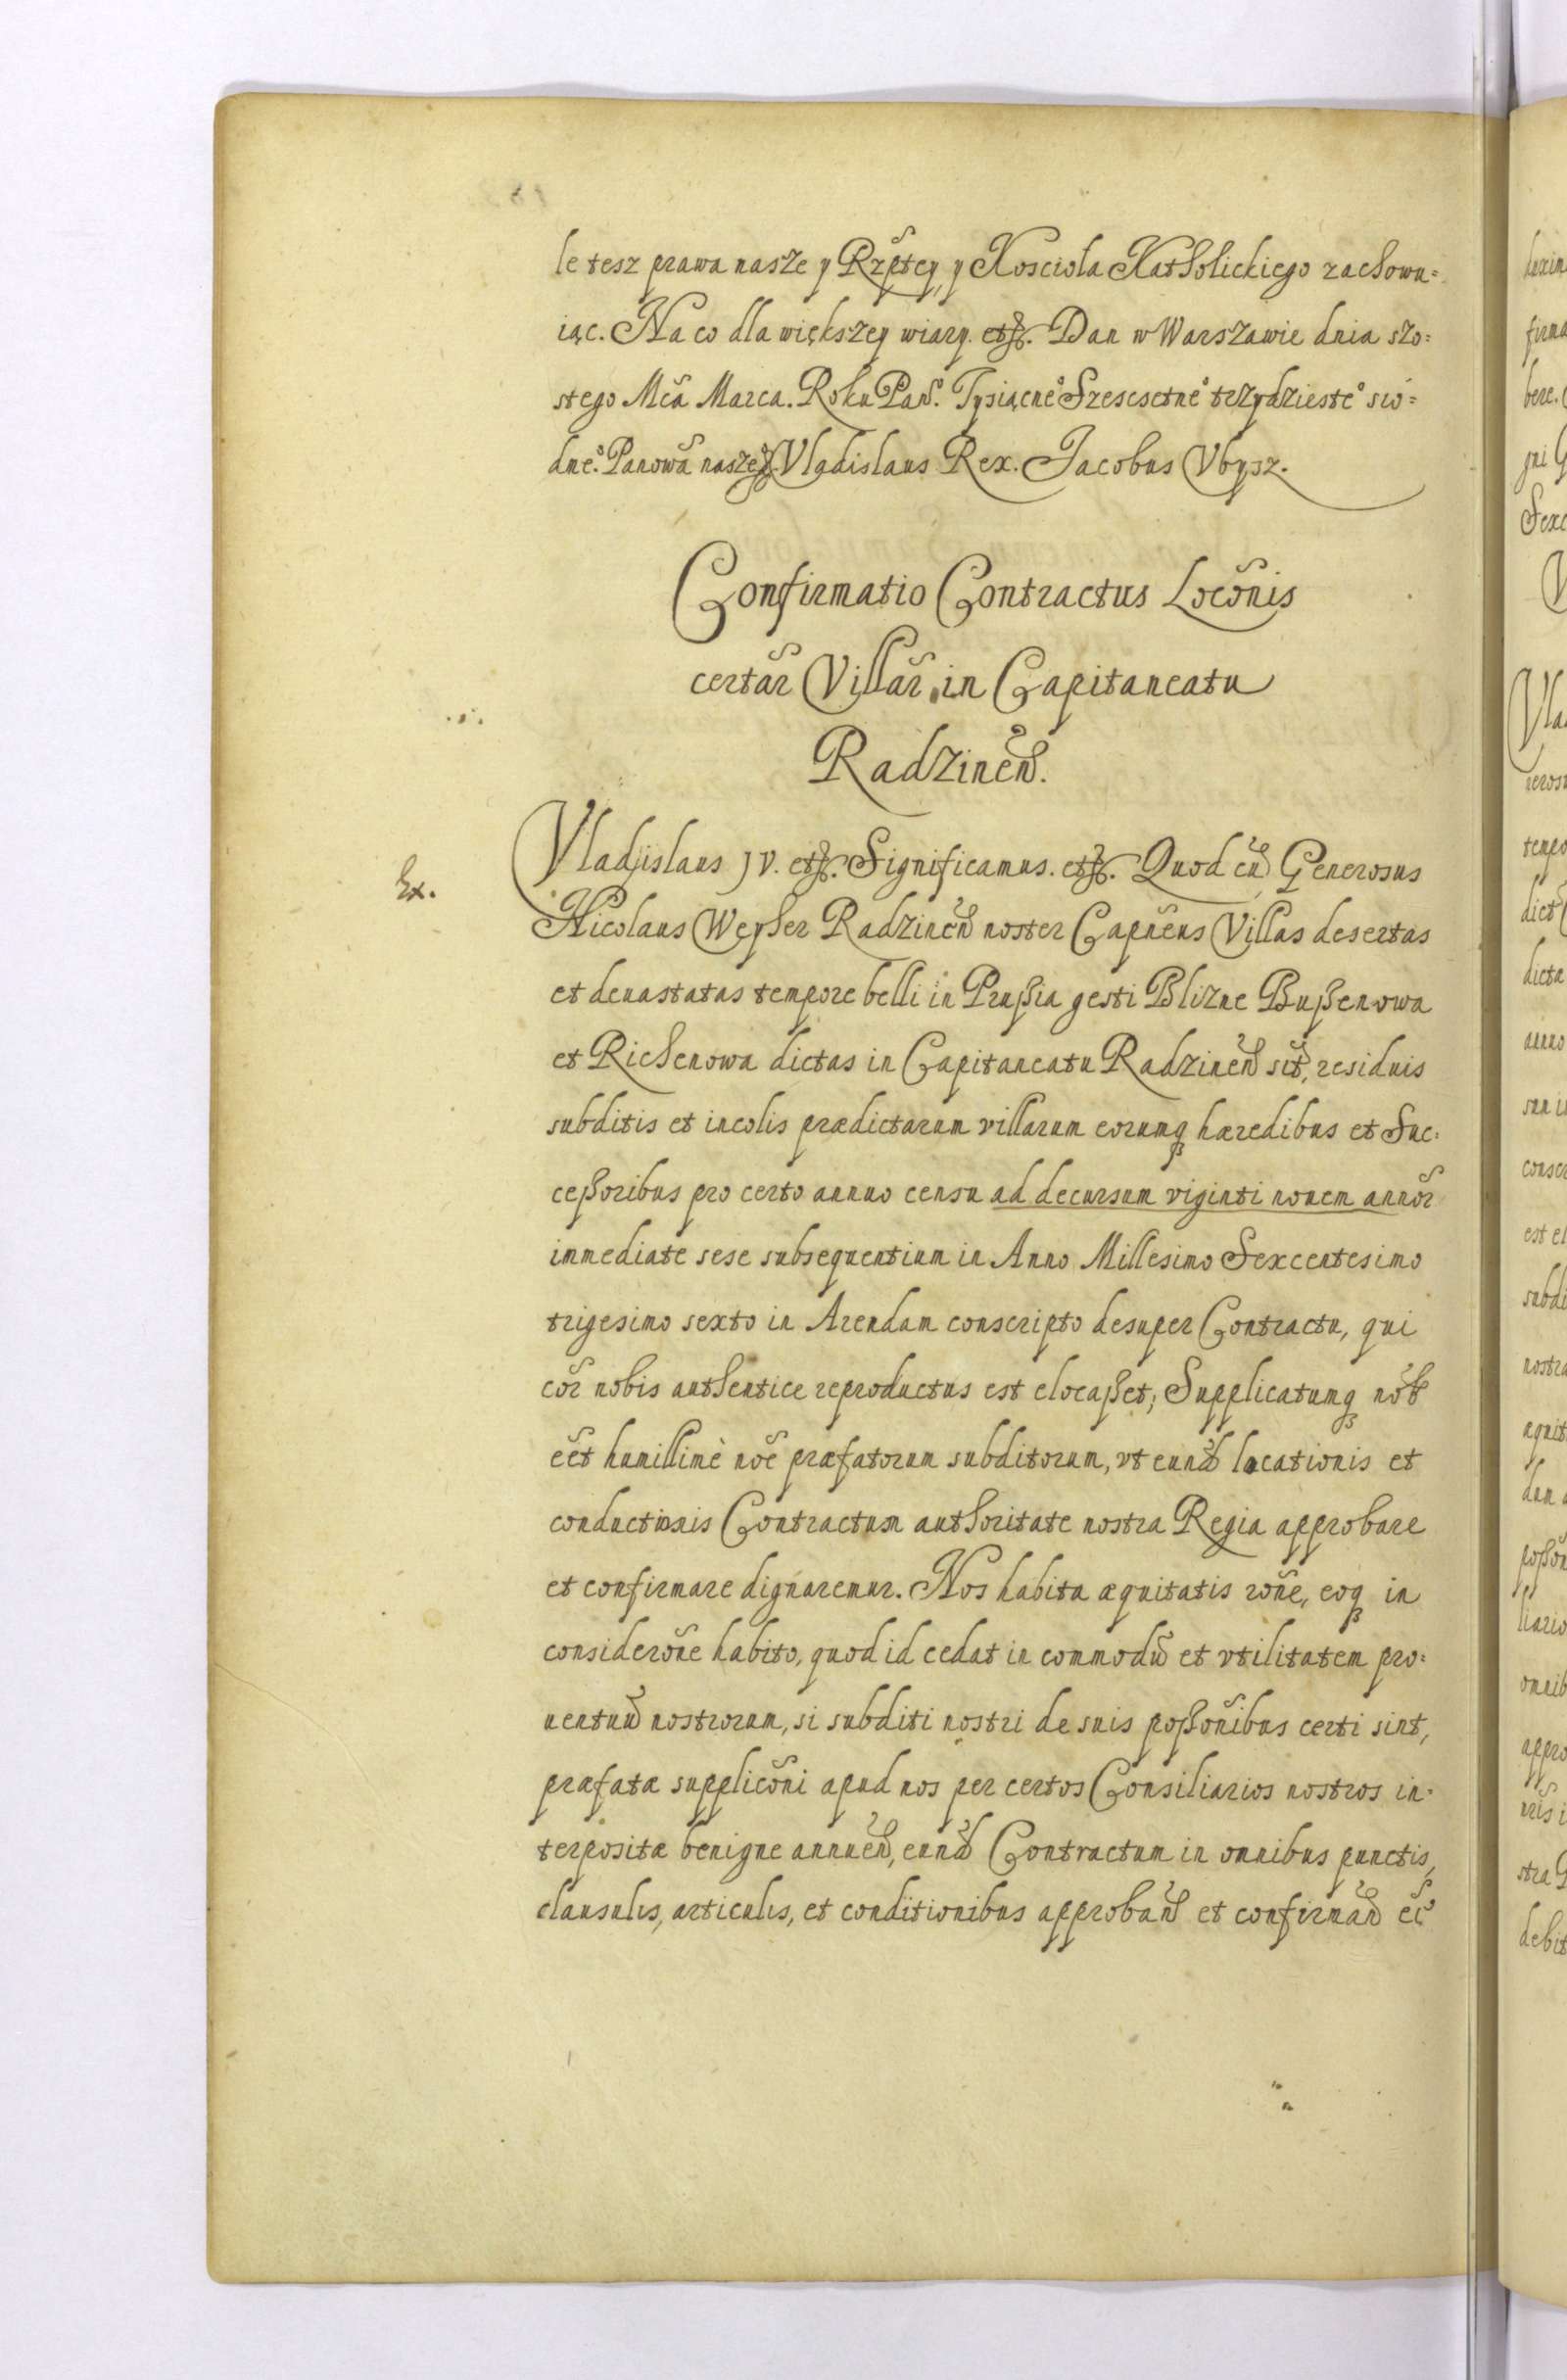 le tesz prawa nasze y Rzptey, y Kosciola Katholickiego zachowu=
iąc. Na co dla większey wiary. etc. Dan w Warszawie dnia szo=
stego Mca Marca. Roku Pań. Tysiącne° Szescsetne° trzydzieste° sio=
dme°. Panowa naszey. Vladislaus Rex. Jacobus Vbysz.
Confirmatio Contractus Locõnis
certar Villar in Capitaneatu
Radzinen.
Ex.
Vladislaus JV. etc. Significamus. etc. Quod cu Generosus
Nicolaus Weyher Radzinen noster Capneus Villas desertas
et deuastatas tempore belli in Prußia gesti Blizne Bußenowa
et Richenowa dictas in Capitaneatu Radzinen sit, residuis
subditis et incolis prædictarum villarum eorumq hæredibus et Suc=
ceßoribus pro certo annuo censu ad decursum viginti nouem annor
immediate sese subsequentium in Anno Millesimo Sexcentesimo
trigesimo sexto in Arendam conscripto desuper Contractu, qui
cor nobis authentice reproductus est elocaßet; Supplicatumq nob
eet humillimè noe præfatorum subditorum, vt eund locationis et
conductionis Contractum authoritate nostra Regia approbare
et confirmare dignaremur. Nos habita æquitatis rõne, eoq in
considerõne habito, quod id cedat in commodũ et vtilitatem pro=
uentuũ nostrorum, si subditi nostri de suis poßonibus certi sint,
præfatæ supplicõni apud nos per certos Consiliarios nostros in=
terpositæ benigne annuen, eund Contractum in omnibus punctis,
clausulis, articulis, et conditionibus approban et confirman